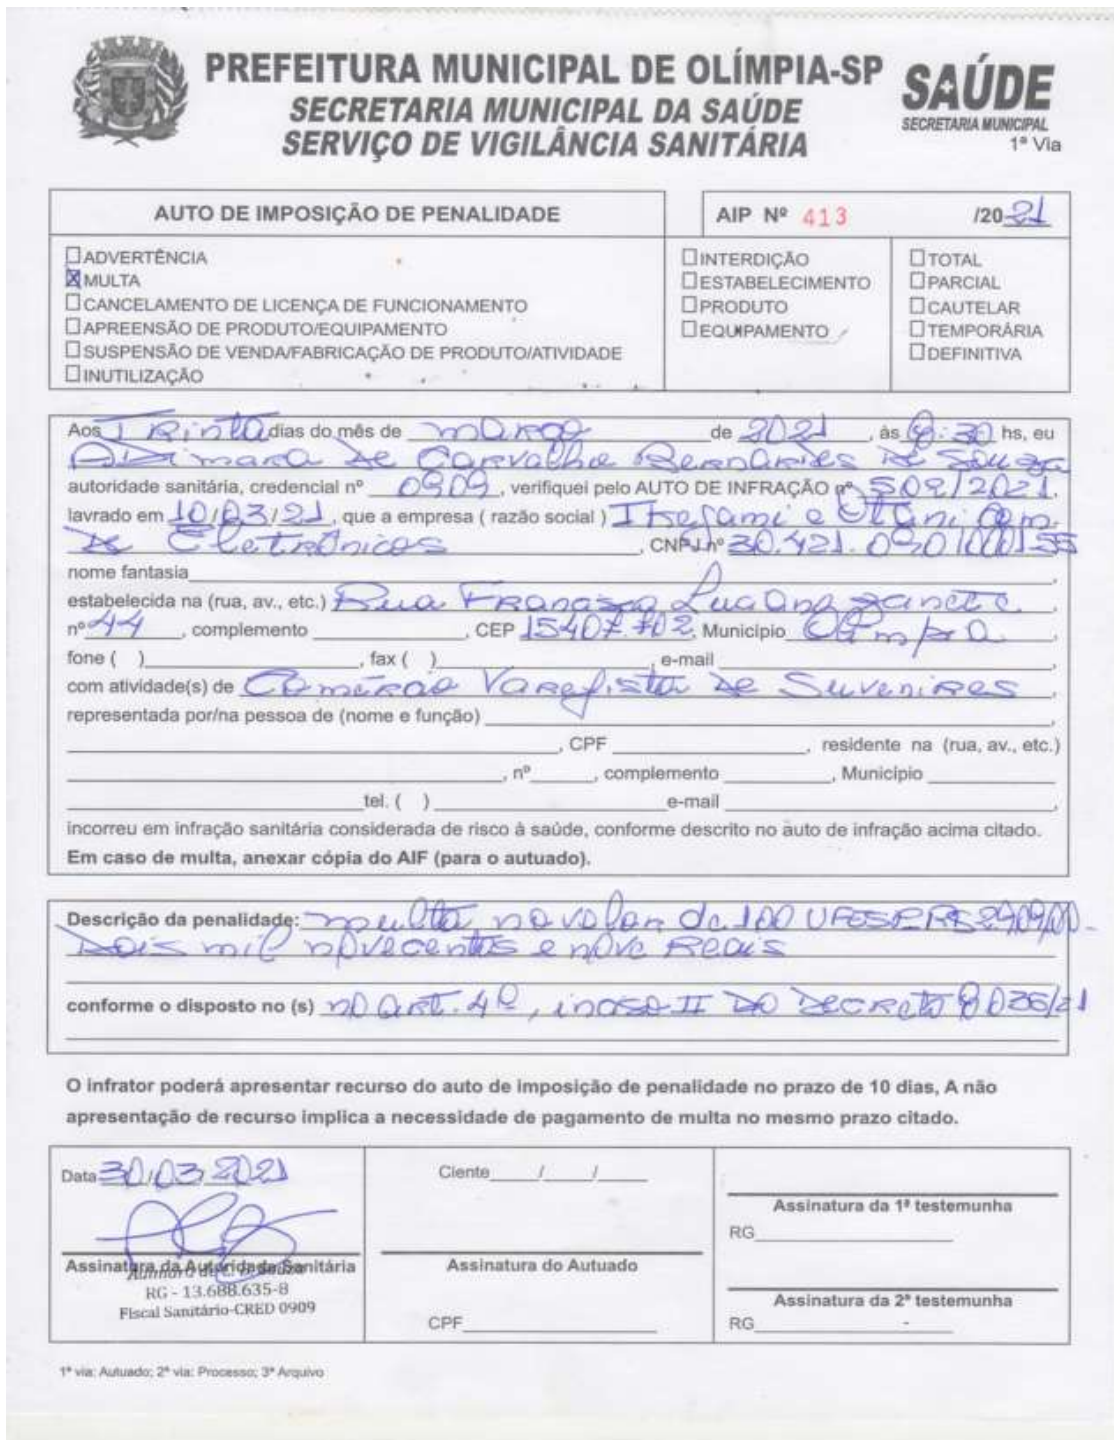 PREFEITURA MUNICIPAL DE OLÍMPIA-SP
SECRETARIA MUNICIPAL DA SAÚDE
SERVIÇO DE VIGILÂNCIA SANITÁRIA
SAÚDE
SECRETARIA MUNICIPAL
1ª Via
AUTO DE IMPOSIÇÃO DE PENALIDADE
AIP Nº 413 /2021
☐ADVERTÊNCIA
☒MULTA
☐CANCELAMENTO DE LICENÇA DE FUNCIONAMENTO
☐APREENSÃO DE PRODUTO/EQUIPAMENTO
☐SUSPENSÃO DE VENDA/FABRICAÇÃO DE PRODUTO/ATIVIDADE
☐INUTILIZAÇÃO
☐INTERDIÇÃO
☐ESTABELECIMENTO
☐PRODUTO
☐EQUIPAMENTO
☐TOTAL
☐PARCIAL
☐CAUTELAR
☐TEMPORÁRIA
☐DEFINITIVA
Aos Trinta dias do mês de março de 2021, às 8:30 hs, eu
Adimara de Carvalho Bernardes de Souza
autoridade sanitária, credencial nº 0909, verifiquei pelo AUTO DE INFRAÇÃO nº 502/2021,
lavrado em 10/03/21, que a empresa ( razão social ) Ikefami e Otani Com.
de Eletrônicos, CNPJ nº 30.421.090/0001 55
nome fantasia
estabelecida na (rua, av., etc.) Rua
nº 44, complemento , CEP 15407.702, Município Olímpia,
fone ( ) , fax ( ) , e-mail
com atividade(s) de Comércio Varejista de Suvenires,
representada por/na pessoa de (nome e função)
, CPF , residente na (rua, av., etc.)
, nº , complemento , Município
tel. ( ) e-mail ,
incorreu em infração sanitária considerada de risco à saúde, conforme descrito no auto de infração acima citado.
Em caso de multa, anexar cópia do AIF (para o autuado).
Descrição da penalidade: multa no valor de 100 UFESP R$ 2909,00 -
Dois mil novecentos e nove Reais
conforme o disposto no (s) no art. 4º, inciso II do Decreto 8026/21
O infrator poderá apresentar recurso do auto de imposição de penalidade no prazo de 10 dias, A não
apresentação de recurso implica a necessidade de pagamento de multa no mesmo prazo citado.
Data 30/03/2021
Assinatura da Autoridade Sanitária
RG - 13.688.635-8
Fiscal Sanitário-CRED 0909
Ciente / /
Assinatura do Autuado
CPF
Assinatura da 1ª testemunha
RG
Assinatura da 2ª testemunha
RG -
1ª via: Autuado; 2ª via: Processo; 3ª Arquivo